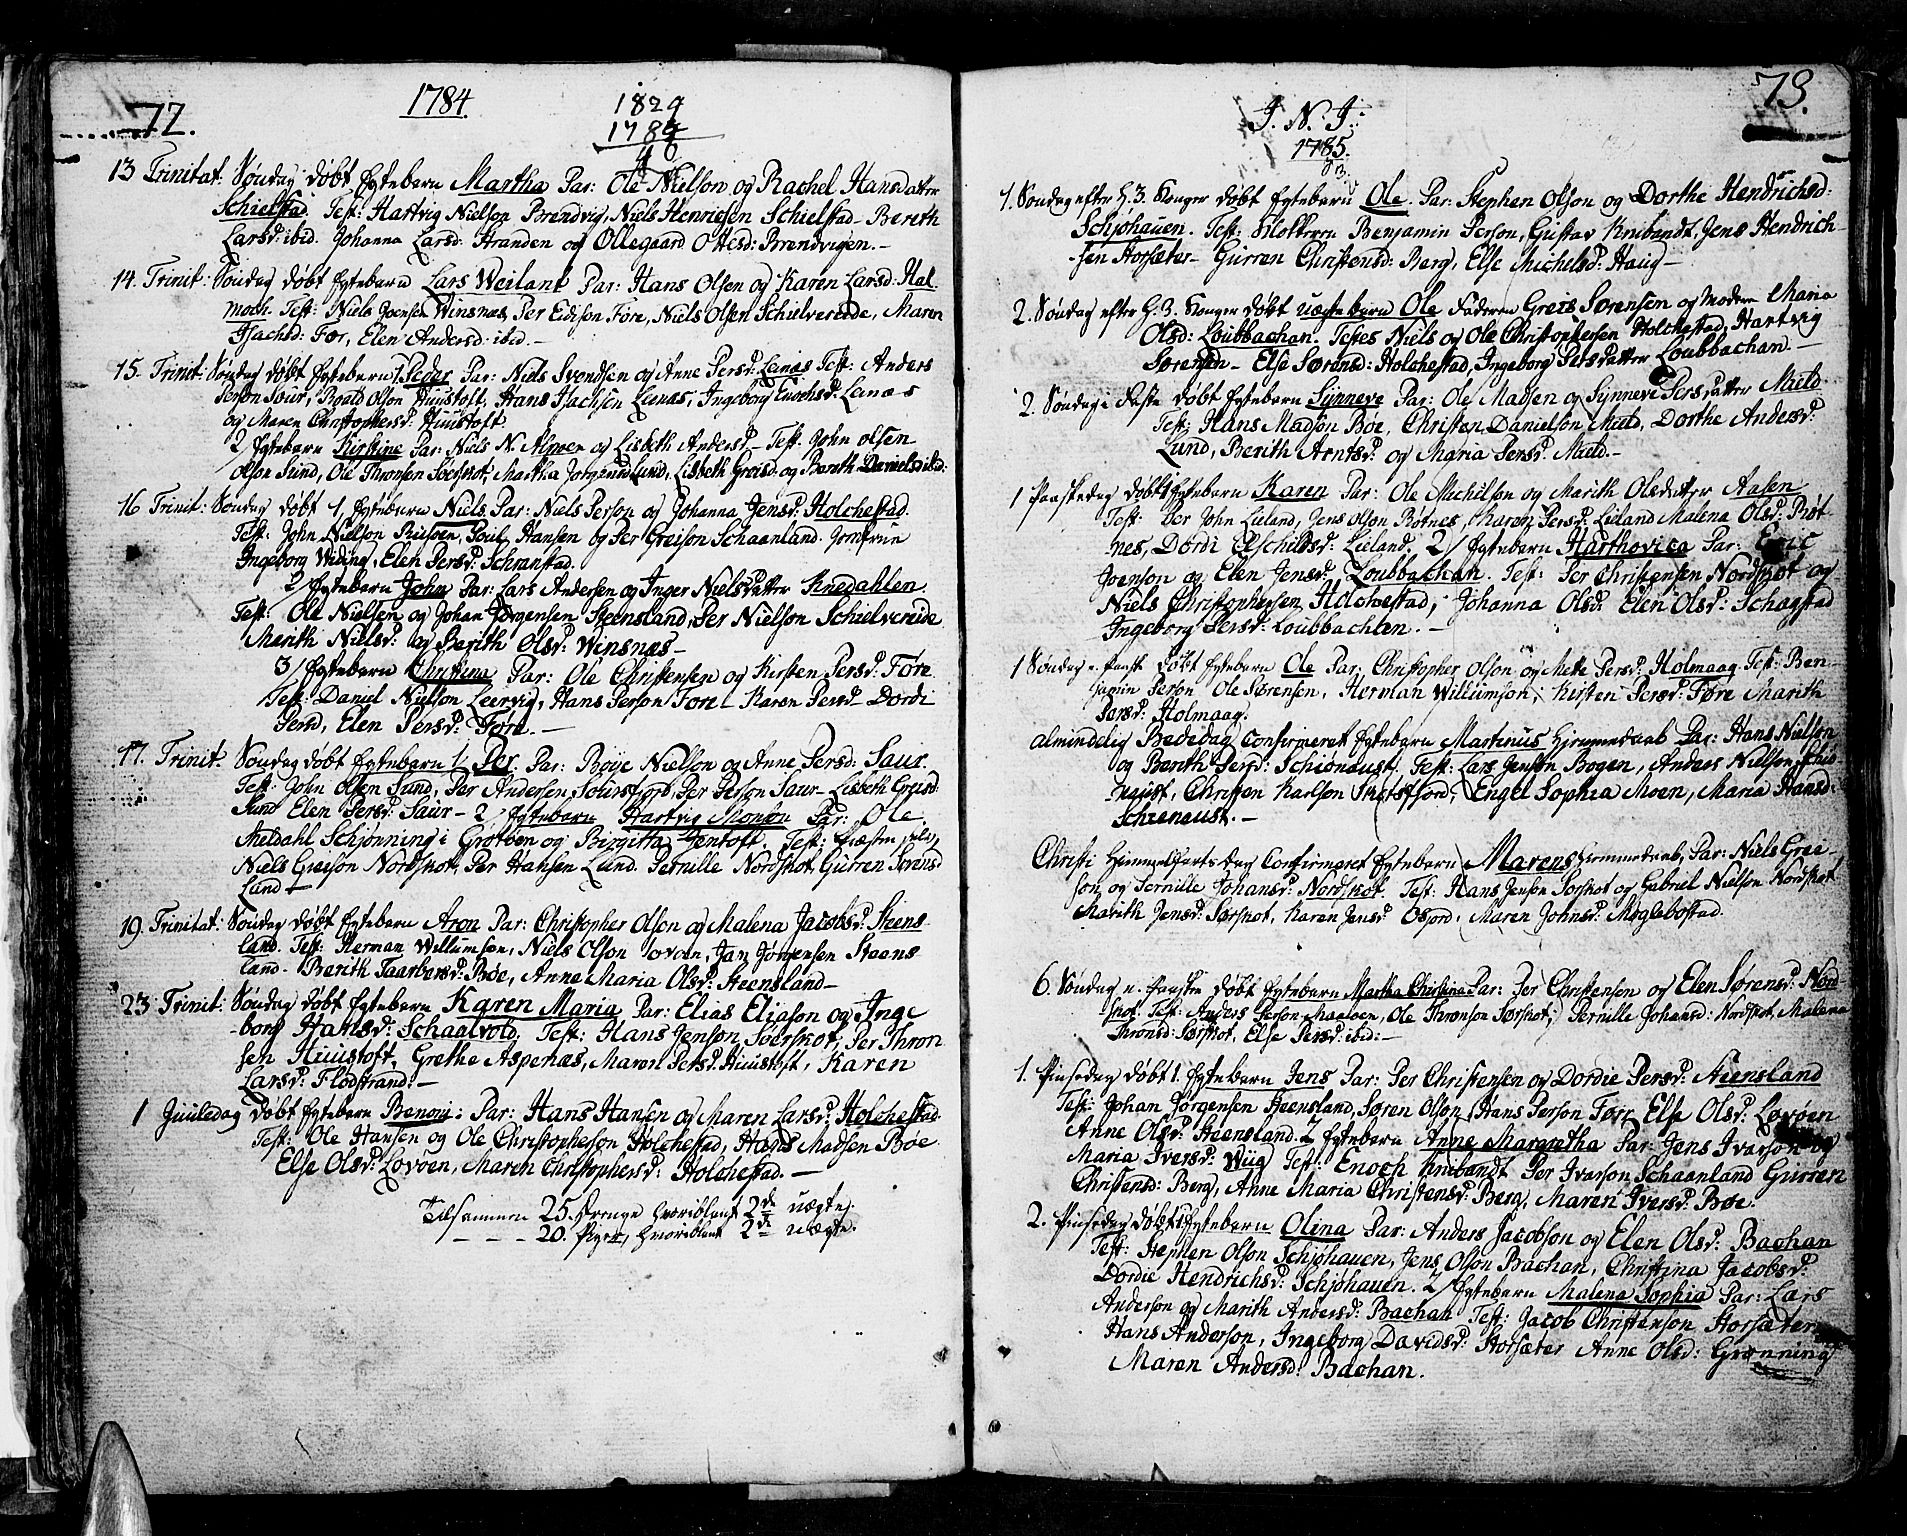 72.
1784
1829
1784
40
13 Trinitat: Søndag døbt Ægtebarn Martha Par: Ole Nielson og Rachel Hansdatter
Schielstad. Test: Hartvig Nielson Brendvig, Niels Henricsen Schielstad - Bereth
Larsd: ibid. Johanna Larsd: Stranden og Ollegaard Ottesd: Brendvigen. -
14. Trinit: Søndag døbt Ægtebarn Lars Weilant Par: Hans Olsen og Karen Larsd: Hal-
moch. Test: Niels Joensen Winsnæs, Per Edisen Føre, Niels Olsen Schielvereide, Maren
Isachsd: Før, Elen Andersd: ibid. -
15. Trinit: Søndag døbt Ægtebarn 1, Peder Par: Niels Svendsen og Anne Persd: Lenæs Test: Anders
Person Saur, Roald Olson Huustoft, Hans Isachsen Leenæs, Ingeborg Enochsd: Lenæs
og Maren Christophersd: Huustoft
2 Ægtebarn Kirstine Par: Niels N. og Lisbeth Andersd - Test: John Olsen
Olson Sund, Ole Thronsen Sørskot, Martha Lund, Lisbeth Greisd: og Berith Danielsd ibid:
16 Trinit: Søndag døbt 1, Ægtebarn Niels Par: Niels Person og Johanna Jensd: Holchestad.
Test: John Nielson Poul Hansen og Per Greison Schaanland. Jomfrue
Ingeborg Widing, Elen Persd: Schranstad.
2/ Ægtebarn John Par: Lars Andersen og Inger Nielsdatter Knedahlen.
Test: Ole Nielsen og Johan Jørgensen Steensland, Per Nielson Schielvereide
Marith Nielsd: og Berith Olsd: Winsnæs -
3/ Ægtebarn Christina Par: Ole Christensen og Kirsten Persd: Føre
Test: Daniel Nielson Leervig, Hans Person Føre - Karen Persd - Dordi
Persd, Elen Persd: Føre. -
17. Trinit: Søndag døbt Ægtebarn 1/ Per. Par: Bøye Nielson og Anne Persd: Saur.
Test: John Olsen Sund, Par Andersen Per Person Saur - Lisbeth Greisd:
Sund Elen Persd: Saur - 2/ Ægtebarn Hartvig Monsøn Par: Ole
Meldahl Schjønning i Grøtøen og Birgitta Jentoft. Test: Præsten selv,
Niels Greison Nordskot, Per Hansen Lund. Pernille Nordskot, Gurren Sørensd
Lund -
19. Trinitat: Søndag døbt Ægtebarn Aron Par: Christopher Olson og Malena Jacobsd: Steens-
land. Test: Herman Willumsen, Niels Olson Lovøen, Jan Jørgensen Steens
land. Berith Taarbersd: Bøe, Anne Maria Olsd: Steensland -
23 Trinit: Søndag døbt Ægtebarn Karen Maria Par: Elias Eliason og Inge
borg Hansd: Schaalvold, Test: Hans Jenson Søerskot, Per Thron
sen Huustoft, Grethe Aspenæs, Maren Persd: Huustoft, Karen
Larsd: Flodstrand. -
1 Juuledag døbt Ægtebarn Benoni: Par: Hans Hansen og Maren Larsd: Holchestad.
Test: Ole Hansen og Ole Christopherson Holchestad, Hans Madsen Bøe.
Else Olsd: Lovøen, Maren Christophersd: Holchestad. -
Tilsammen 25. Drenge hvoriblant 2de uægte.
- - - 20. Piger, hvoriblant 2de uægte.
73.
J. N. J:
1785.
1. Søndag efter H. 3. Konger døbt Ægtebarn Ole. Par: Stephen Olson og Dorthe Hendrichsd:
Schjøhauen. Test: Klokkeren Benjamin Person, Gustav Knibandt, Jens Hendrich-
sen Horsæter - Gurren Christensd: Berg, Else Michelsd: Haug -
2. Søndag efter H. 3. Konger døbt uægtebarn Ole Faderen Greis Sørensen og Moderen Maria
Olsd: Loubbachan. Testes Niels og Ole Christophersen Holchestad, Hartvig
Sørensen - Else Sørensd: Holchestad, Ingeborg Persdatter Loubbachan. -
2. Søndag i Faste døbt Ægtebarn Synneve Par: Ole Madsen og Synneve Persdatter Mield
Test: Hans Madson Bøe, Christen Danielson Mield, Dorthe Andersd:
Lund, Berith Arntsd: og Maria Persd: Mield. -
1 Paaskedag døbt 1 Ægtebarn Karen Par: Ole Michilson og Marith Olsdatter Aasen
Test: Per John Lieland, Jens Olson Bøtnes, Karen Persd: Lieland Malena Olsd: Bøt
nes, Dordi Elschildsd: Lieland. 2/ Ægtebarn Harthovica Par: Eric
Joenson og Elen Jensd: Loubbachan. Test: Per Christensen Nordskot og
Niels Christophersen Holchestad; Johanna Olsd: Elen Olsd: Schagstad
Ingeborg Persd: Loubbachlen. -
1 Søndag e. Paaske døbt Ægtebarn Ole Par: Christopher Olson og Mette Persd: Holmaag Test: Ben-
jamin Person Ole Sørensen, Herman Willumson, Kirsten Persd: Føre Marith
Persd: Holmaag.
Almindelig Bededag Confirmeret Ægtebarn Martinus Hjemmedaab Par: Hans Nielson
og Berith Persd: Schionaust. Test: Lars Jenson Bogen, Anders Nielson Schio-
naust, Christen Karlson Engel Sophia Moen, Maria Hansd:
Schienaust. -
Christi Himmelfarts Dag Confirmeret Ægtebarn Marens Hjemmedaab, Par: Niels Grei-
son, og Pernille Johansd: Nordskot. Test: Hans Jenson Sørskot og Gabriel Nielson Nordskot
Marith Jensd: Sørskot, Karen Jensd Maren Johnsd: Møglebostad.
6. Søndag e. Paaske døbt Ægtebarn Martha Christina Par: Per Christenson og Elen Sørensd: Nord
skot Test: Anders Person Maaløen, Ole Thronson Sørskot, Pernille Johansd: Nordskot, Malena
Thronsd: Sørskot, Else Persd: ibid: -
1. Pinsedag døbt 1. Ægtebarn Jens Par: Per Christensen og Dordie Persd: Steensland
Test: Johan Jørgensen Steensland, Søren Olson Hans Person Føre, Else Olsd: Lovøen
Anne Olsd: Steensland. 2 Ægtebarn Anne Margretha Par: Jens Ivarson og
Maria Iversd: Wiig Test: Enoch Knibandt Per Ivarson Schaanland Gurren
Christensd: Berg, Anne Maria Christensd: Berg, Maren Iversd: Bøe.
2. Pinsedag døbt 1 Ægtebarn Olina Par: Anders Jacobson og Elen Olsd: Bachan
Test: Stephen Olson Schjøhauen, Jens Olson Bachan, Christina Jacobsd:
Dordie Hendrichsd: Schjøhauen. 2/ Ægtebarn Malena Sophia Par: Lars
Anderson og Marith Andersd: Bachan Test: Jacob Christenson Horsæter
Hans Anderson, Ingeborg Davidsd: Horsæter Anne Olsd: Grønning
Maren Andersd: Bachan.